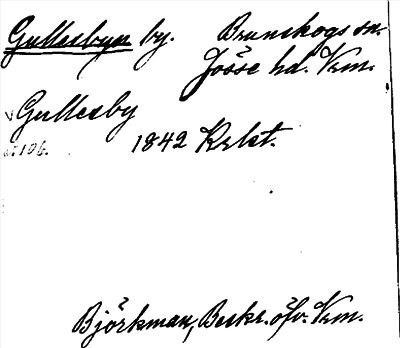 Gullesbyn by. Brunskogs sn.
Jösse hd. Vrm.
Gullesby
1842 Krlst.
Björkman, Beskr. öfv. Vrm.